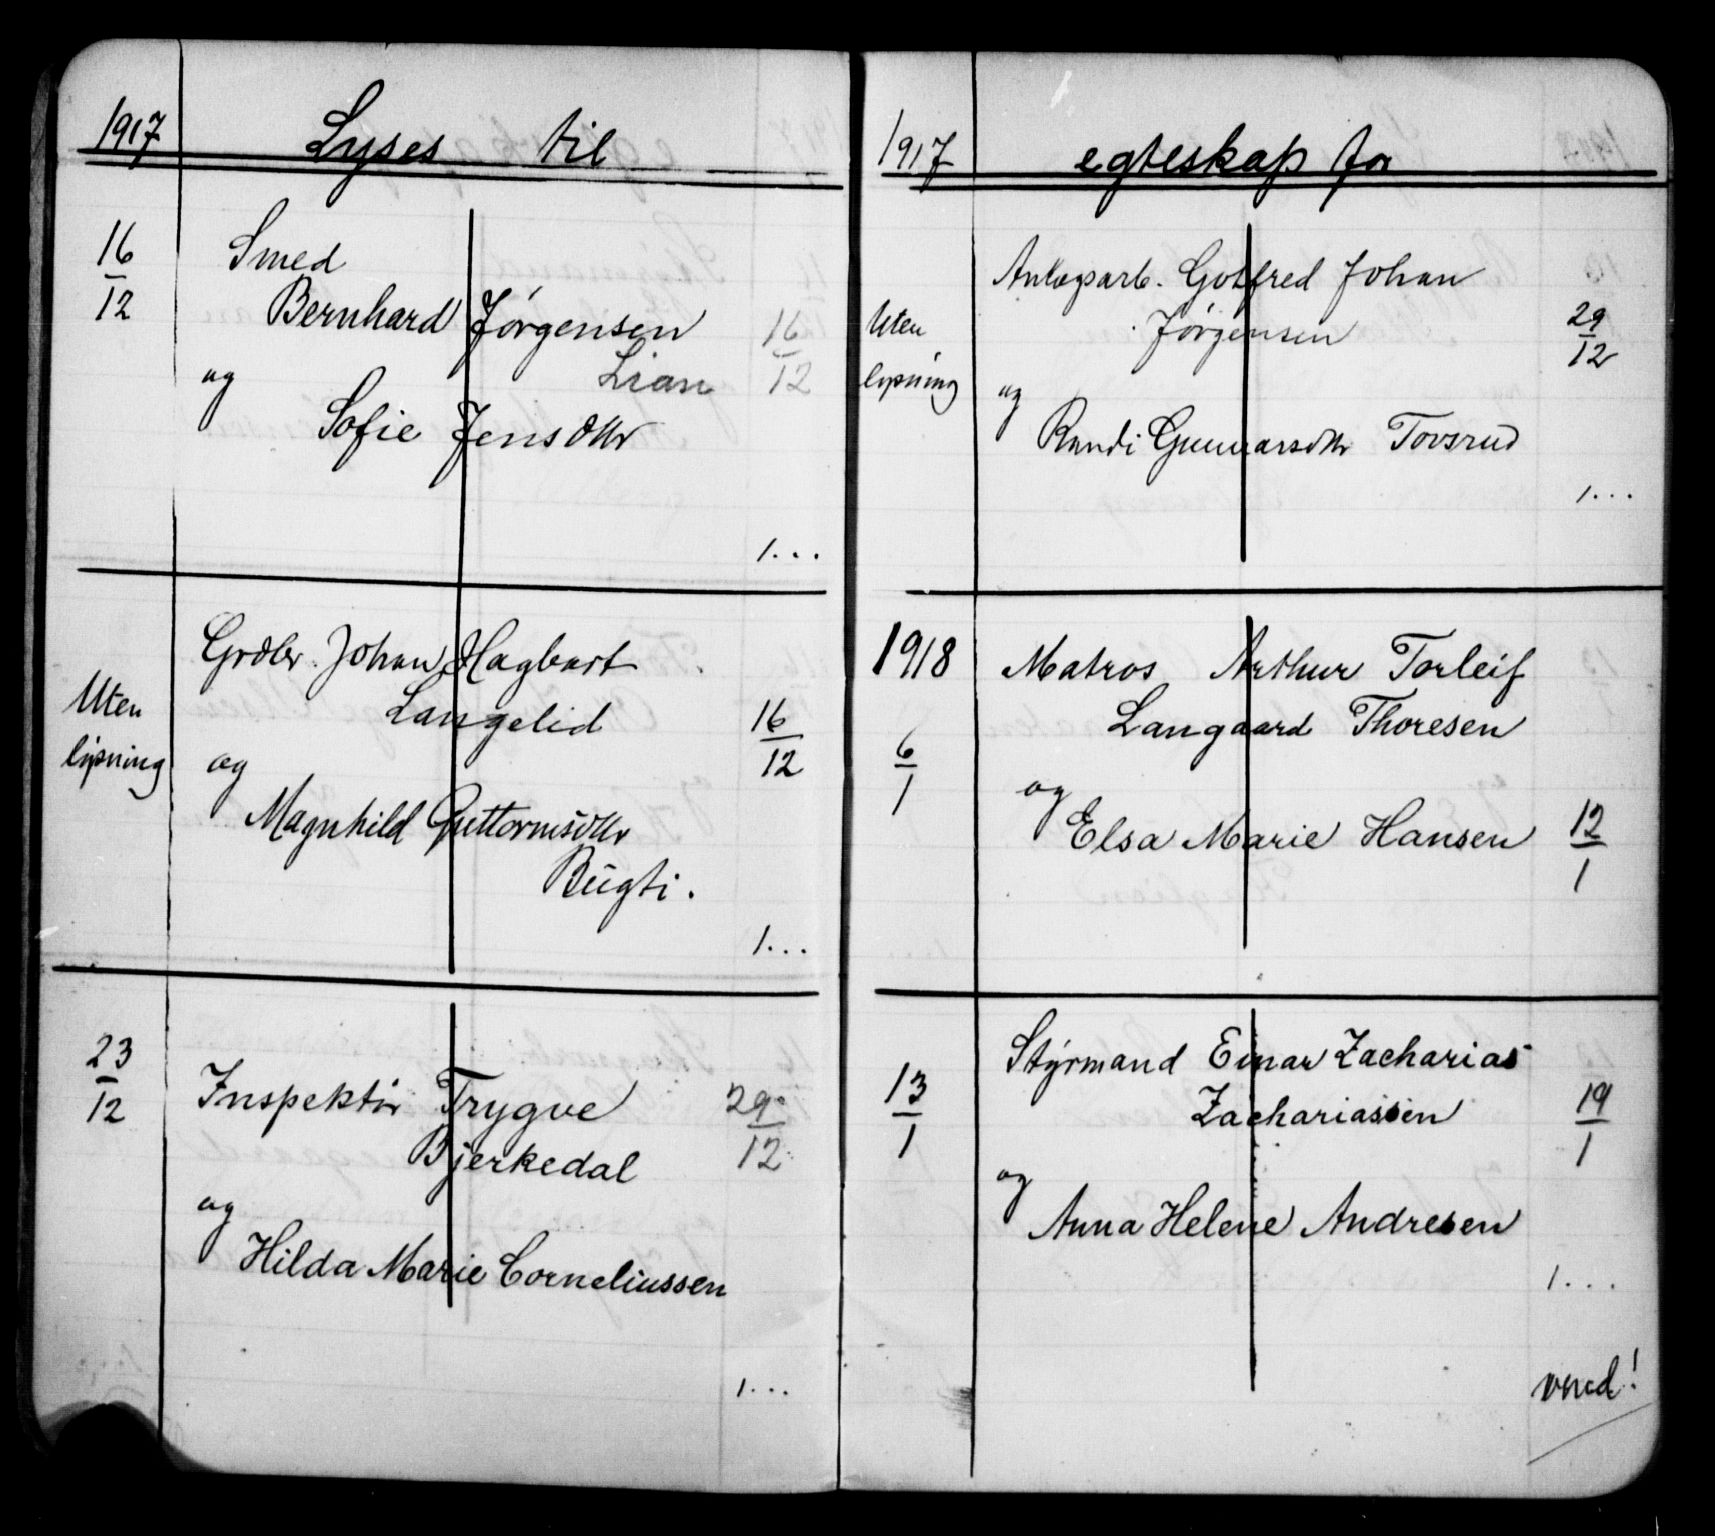 1917 Lyses til
16/12 Smed
Bernhard Jørgensen 16/12
Lian
og
Sofie Jensdtr
1...
Grdbr. Johan Hagbart
Langelid 16/12
Uten
lysning
og
Magnhild Guttormsdtr
Bugti.
1...
23/12
Inspektør Trygve 29/12
Bjerkedal
og
Hilda Marie Corneliussen
1...
1917 egteskap for
Anlægsarb. Gotfred Johan
Uten
Jørgensen 29/12
lysning
og
Randi Gunnarsdtr Tovsrud
1...
1918 Matros Arthur Torleif
Langaard Thoresen
6/1
og
Elsa Marie Hansen 12/1
Styrmand Einar Zacharias
13/1 Zachariassen 19/1
og
Anna Helene Andresen
1...
vend!